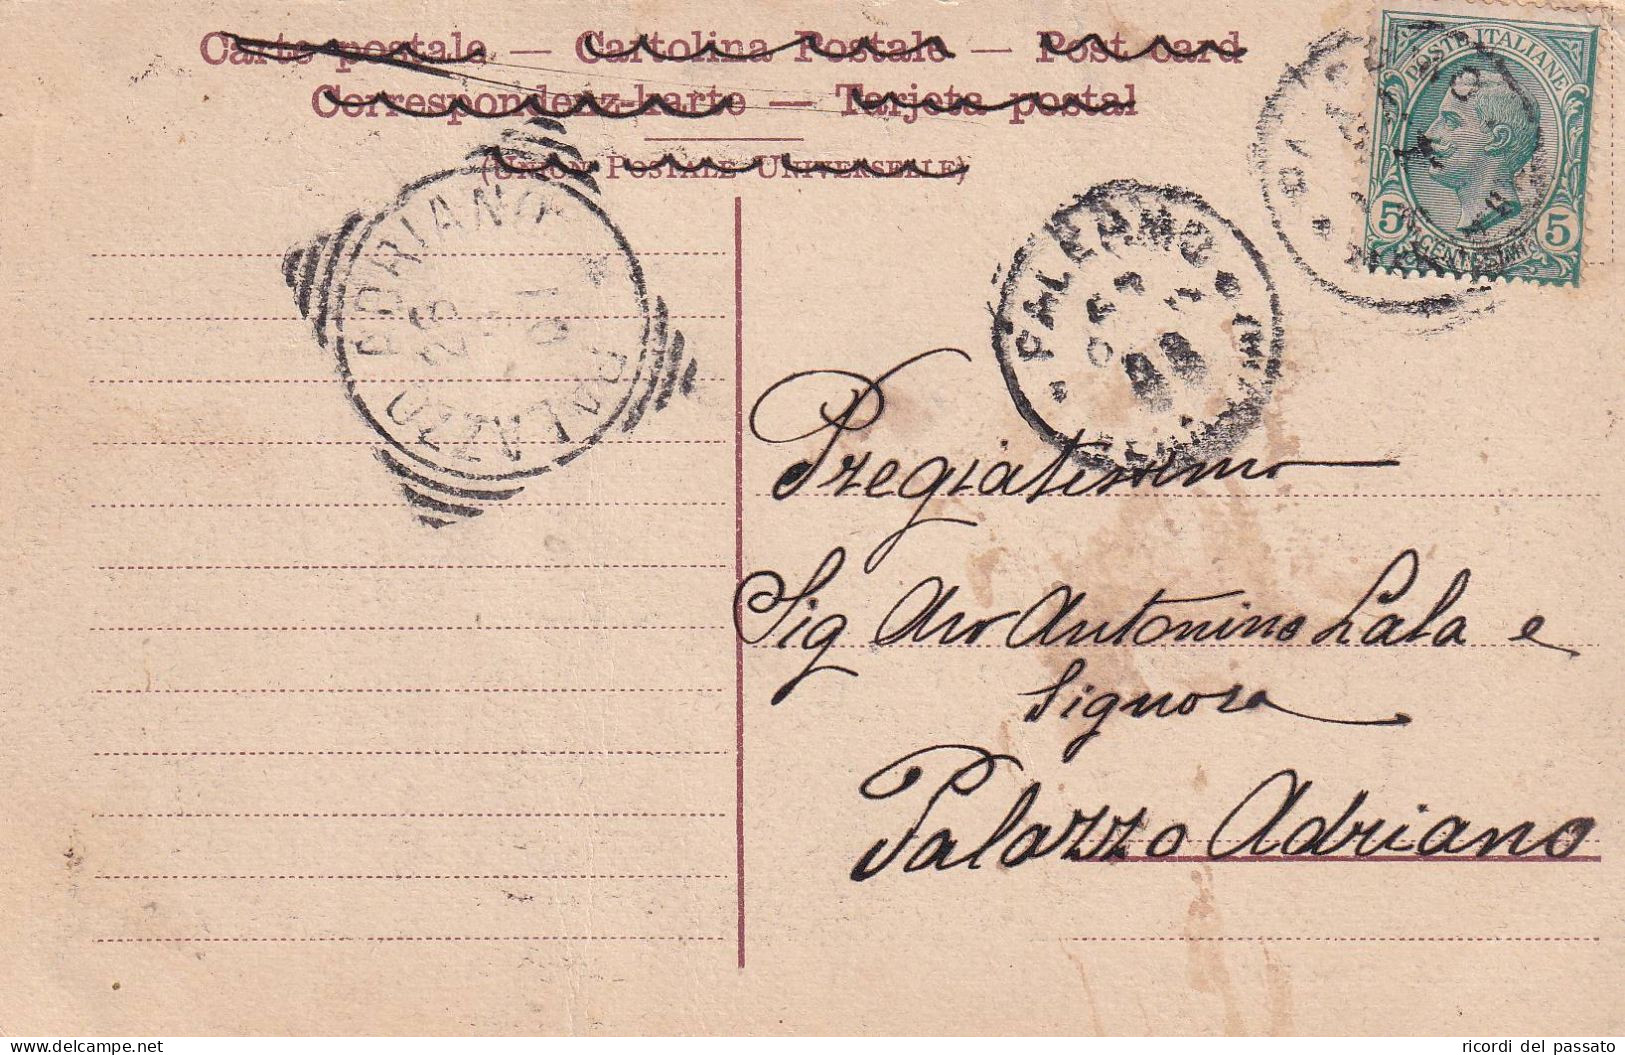 Carte postale — Cartolina Postale — Post card
Correspondenz-karte — Tarjeta postal
(Union Postale Universelle)
POSTE ITALIANE
5 CENTESIMI 5
PALAZZO ADRIANO
PALERMO
26
PALERMO
Pregiatissimo
Sig Avv Antonino Lala e
Signora
Palazzo Adriano
www.delcampe.net
ricordi del passato